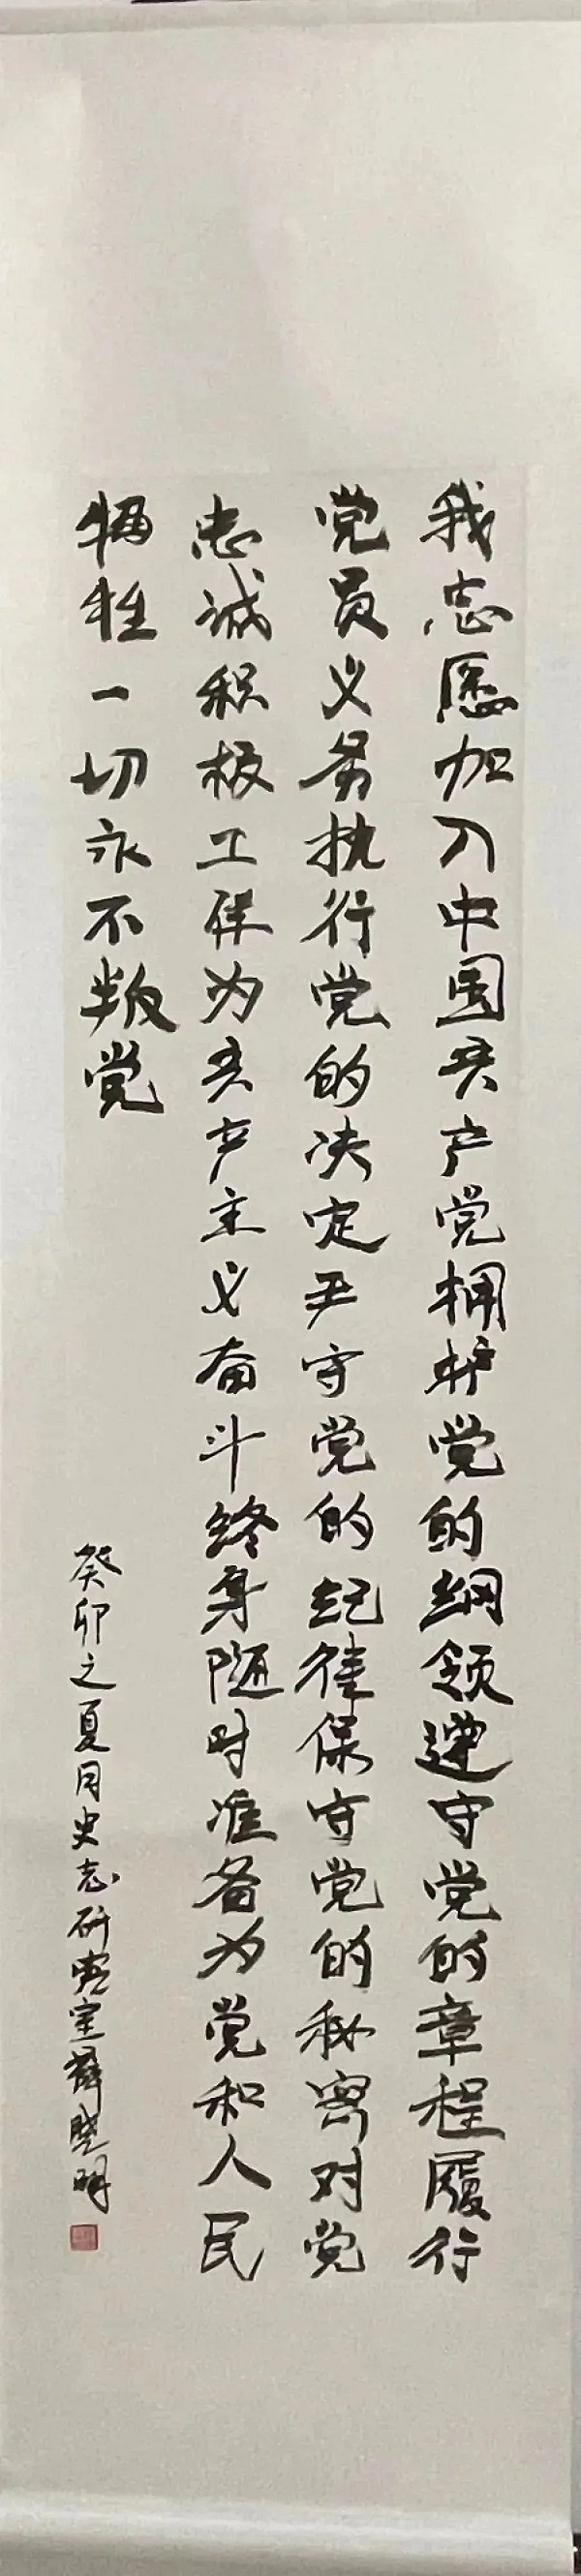 我志愿加入中国共产党拥护党的纲领遵守党的章程履行
党员义务执行党的决定严守党的纪律保守党的秘密对党
忠诚积极工作为共产主义奋斗终身随时准备为党和人民
牺牲一切永不叛党
癸卯之夏月史志研究室薛晓明